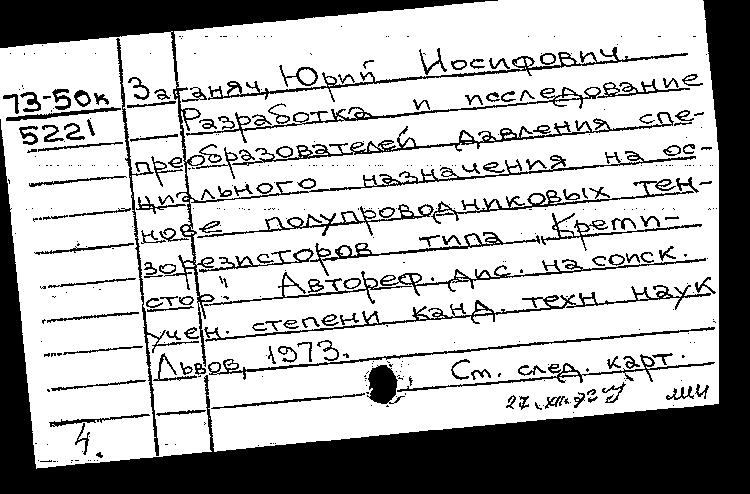 73-50к
5221
Заганяч, Юрий Иосифович.
Разработка и исследование
преобразователей давления спе-
циального назначения на ос-
нове полупроводниковых тен-
зорезисторов типа „Кремни-
стор". Автореф. дис. на соиск.
учен. степени канд. техн. наук
Львов, 1973.
Ст. след. карт.
4.